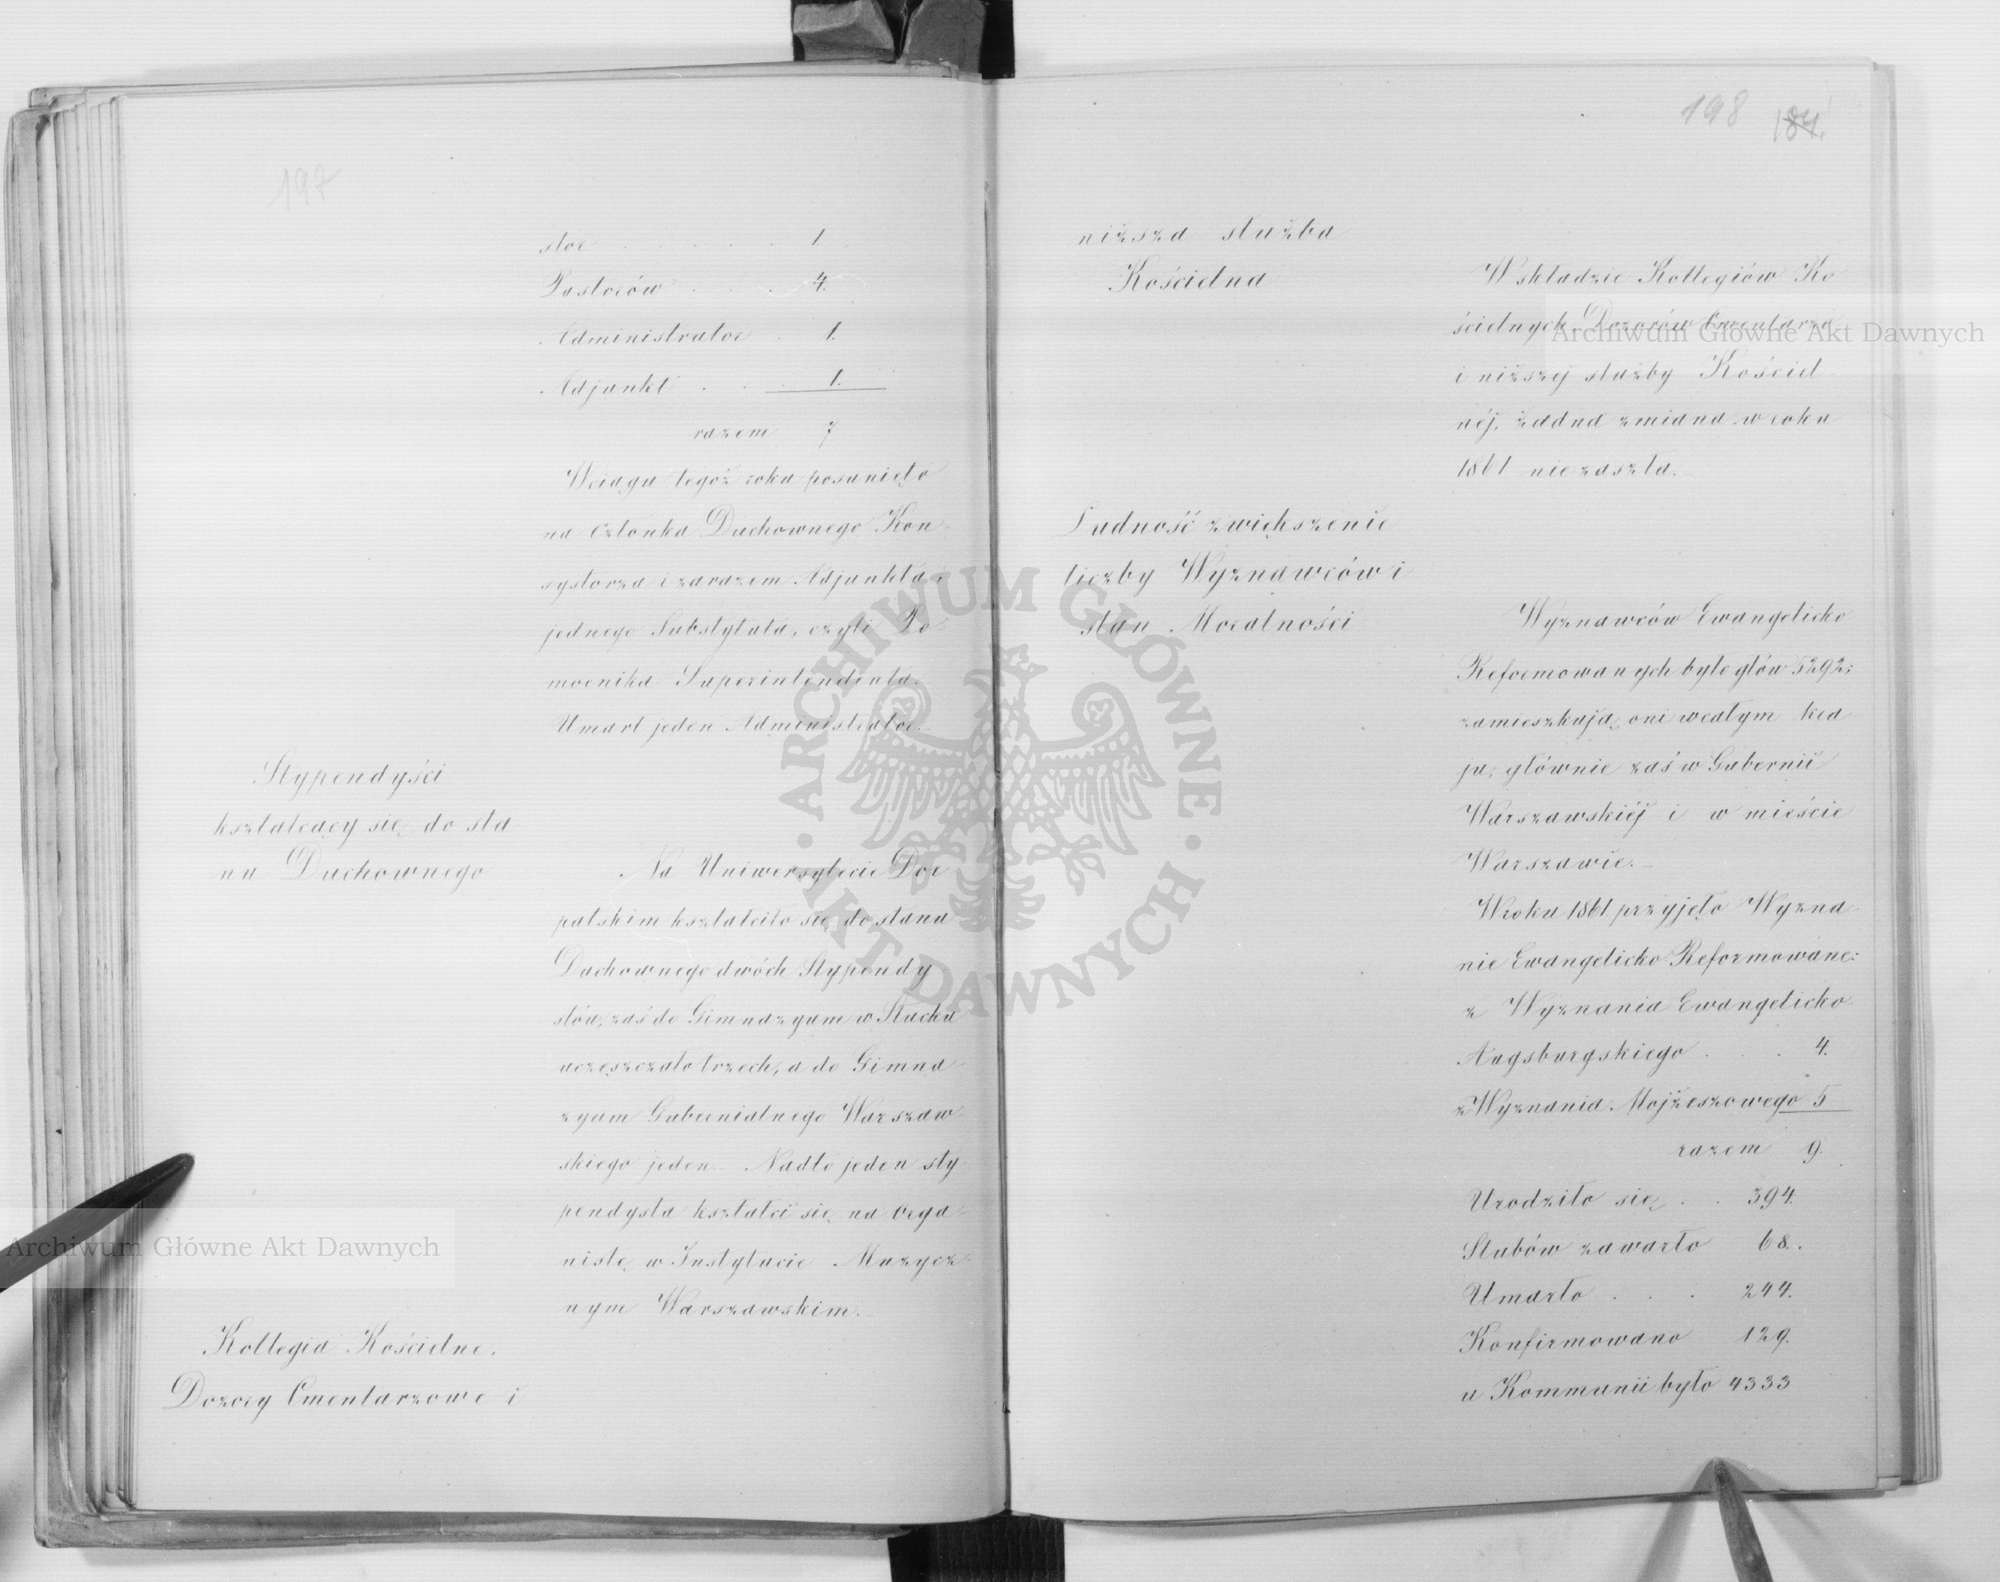 197
stor . . . . . 1
Pastorów . . . 4.
Administrator . 1.
Adjunkt . . . 1.
razem 7
Wciągu tegoż roku posunięto
na Członka Duchownego Kon-
systorza i zarazem Adjunkta,
jednego Substytuta, czyli Po
mocnika Superintendenta.
Umarł jeden Administrator.
Stypendyści
kształcący się do sta
nu Duchownego
Na Uniwersytecie Dor
patskim kształciło się do stanu
Duchownego dwóch Stypendy
stów, zaś do Gimnazyum w Słucku
uczęszczało trzech, a do Gimna
zyum Gubernialnego Warszaw
skiego jeden. Nadto jeden sty
pendysta kształci się na orga-
nistę w Instytucie Muzycz-
nym Warszawskim.
Kollegia Kościelne,
Dozory Cmentarzowe i
198 184.
niższa służba
Kościelna
W składzie Kollegiów Ko
ścielnych, Dozorów Cmentarza
i niższej służby Kościel
néj, żadna zmiana w roku
1861 nie zaszła.
Ludność zwiększenie
liczby Wyznawców i
stan Moralności
Wyznawców Ewangelicko
Reformowanych było głów 5292;
zamieszkują oni w całym kra
ju, głównie zaś w Gubernii
Warszawskiéj i w mieście
Warszawie.
W roku 1861 przyjęło Wyzna-
nie Ewangelicko Reformowane:
z Wyznania Ewangelicko
Augsburgskiego . . . 4.
z Wyznania Mojżeszowego 5
razem 9.
Urodziło się . . 394.
Slubów zawarto 68.
Umarło . . . 244.
Konfirmowano 129.
u Kommunii było 4333
Archiwum Główne Akt Dawnych
Archiwum Główne Akt Dawnych
ARCHIWUM GŁÓWNE · AKT DAWNYCH ·